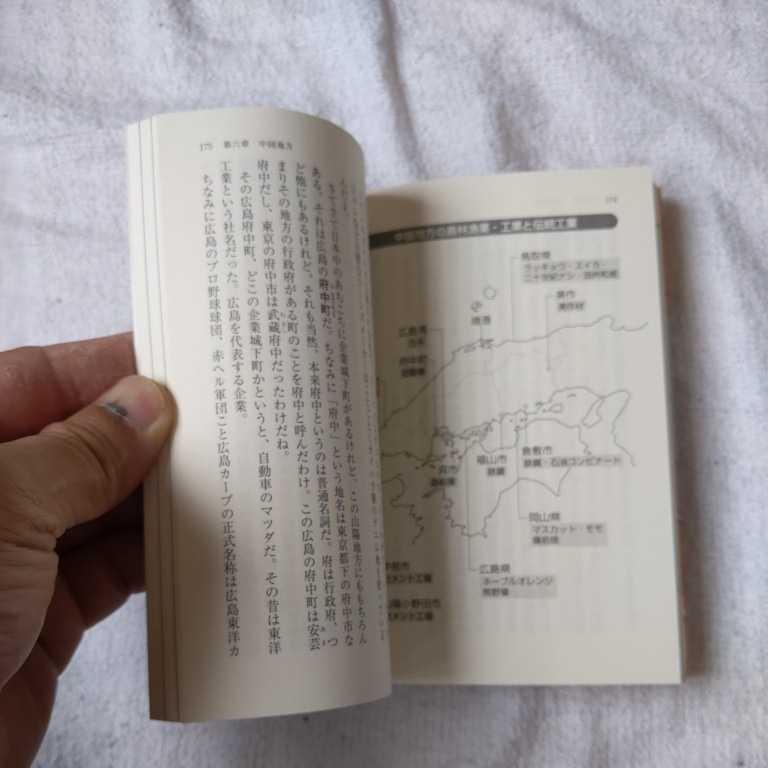 175 第六章 中国地方
さて全て日本中のあちこちに企業城下町があるけれど、この山陽地方にももちろん
ある。それは広島の府中町だ。ちなみに「府中」という地名は東京都下の府中市な
ど他にもあるけれど、それも当然、本来府中というのは普通名詞だ。府は行政府、つ
まりその地方の行政府がある町のことを府中と呼んだわけ。この広島の府中町は安芸
府中だし、東京の府中市は武蔵府中だったわけだね。
その広島府中町、どこの企業城下町かというと、自動車のマツダだ。その昔は東洋
工業という社名だった。広島を代表する企業。
ちなみに広島のプロ野球球団、赤ヘル軍団こと広島カープの正式名称は広島東洋カ
174
中国地方の農林漁業・工業と伝統工業
鳥取県
ラッキョウ・スイカ・
二十世紀ナシ・因州和紙
境港
広島湾
カキ
府中町
自動車
呉市
造船業
福山市
鉄鋼
倉敷市
鉄鋼・石油コンビナート
岡山県
マスカット・モモ
備前焼
広島県
ネーブルオレンジ
熊野筆
メント工場
陽小野田市
メント工場